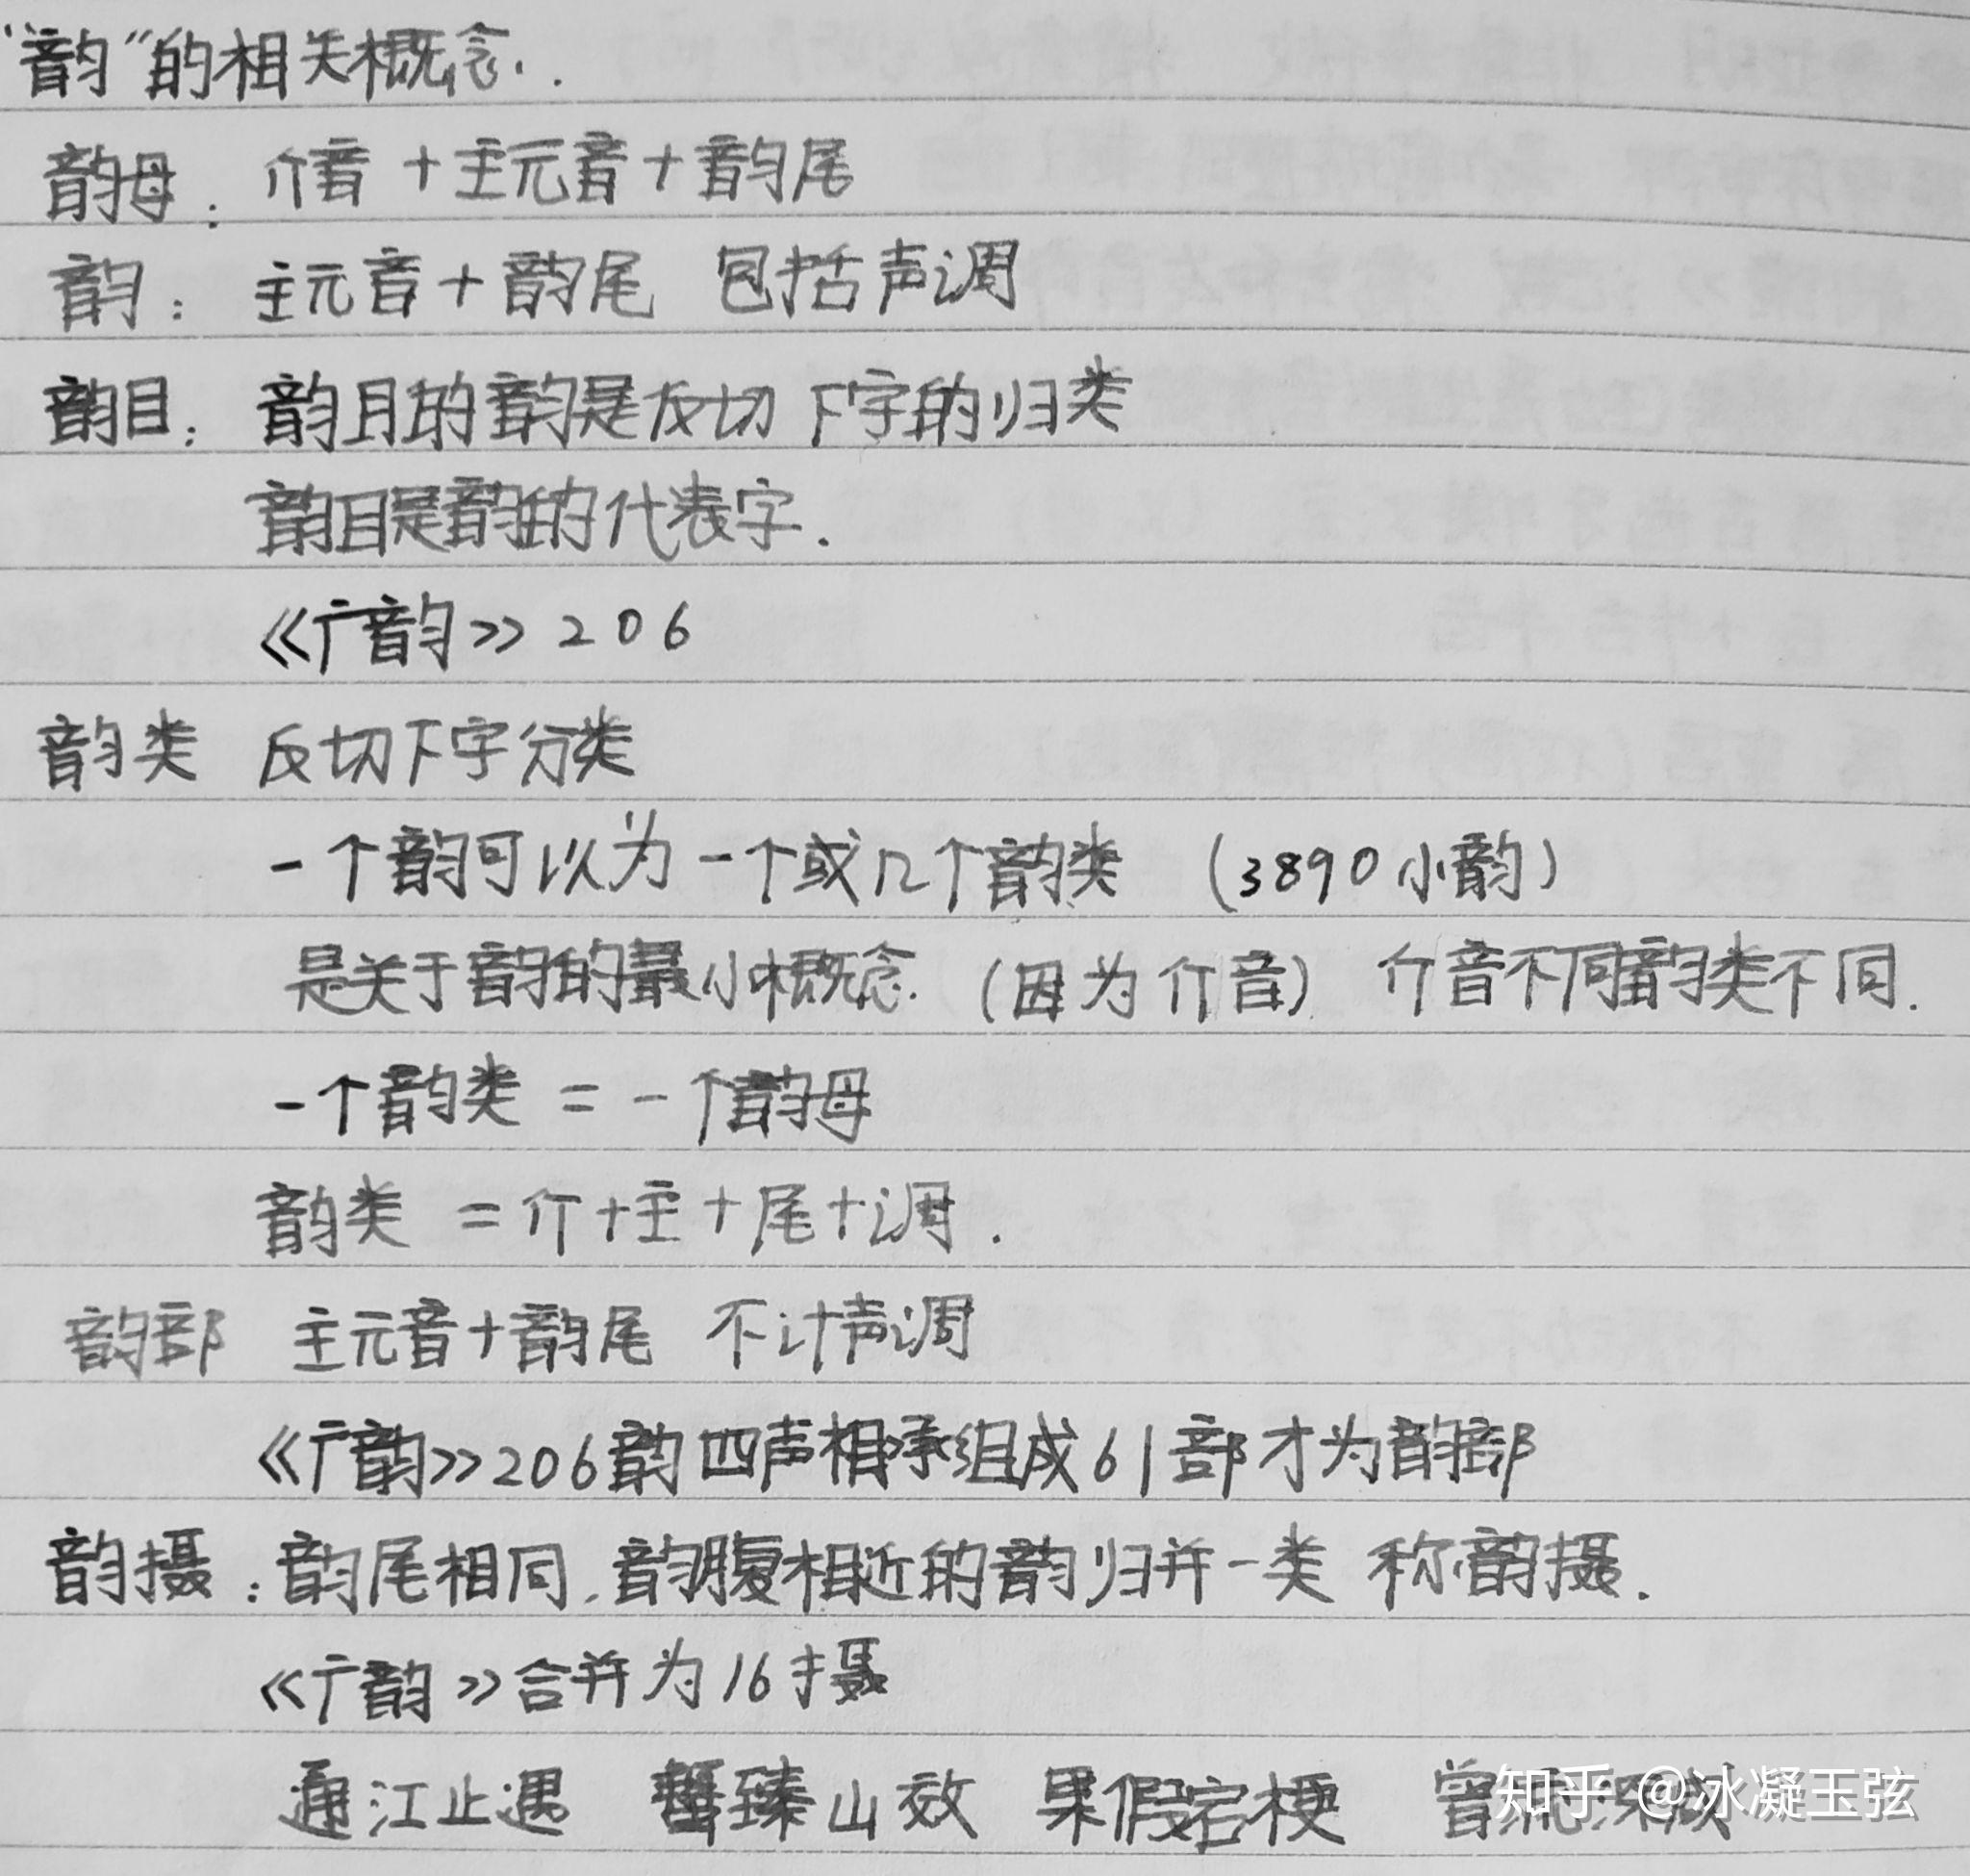 “韵”的相关概念.
韵母：介音＋主元音＋韵尾
韵：主元音＋韵尾 包括声调
韵目：韵目的韵是反切下字的归类
韵目是韵的代表字.
《广韵》206
韵类 反切下字分类
一个韵可以为一个或几个韵类（3890小韵）
是关于韵的最小概念.（因为介音）介音不同韵类不同.
一个韵类＝一个韵母
韵类＝介＋主＋尾＋调.
韵部 主元音＋韵尾 不计声调
《广韵》206韵四声相承组成61部才为韵部
韵摄：韵尾相同，韵腹相近的韵归并一类 称韵摄.
《广韵》合并为16摄
通江止遇 蟹臻山效 果假宕梗 曾流深
知乎 @冰凝玉弦